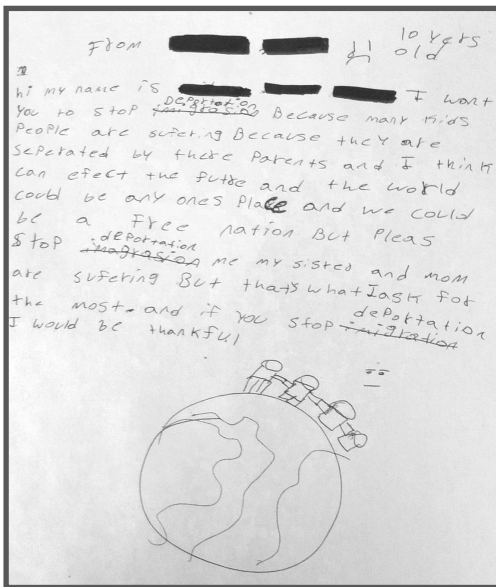 From 10 Yers
old
hi my name is I want
deportation
You to stop imigrasion Because many kids
People are sufering Because they are
seperated by there Parents and I think
can efect the futre and the world
could be any ones Place and we could
be a Free nation But Pleas
deportation
Stop imagrasion me my sister and mom
are sufering But thats what I ask for
deportation
the most. and if you stop imigration
I would be thankful